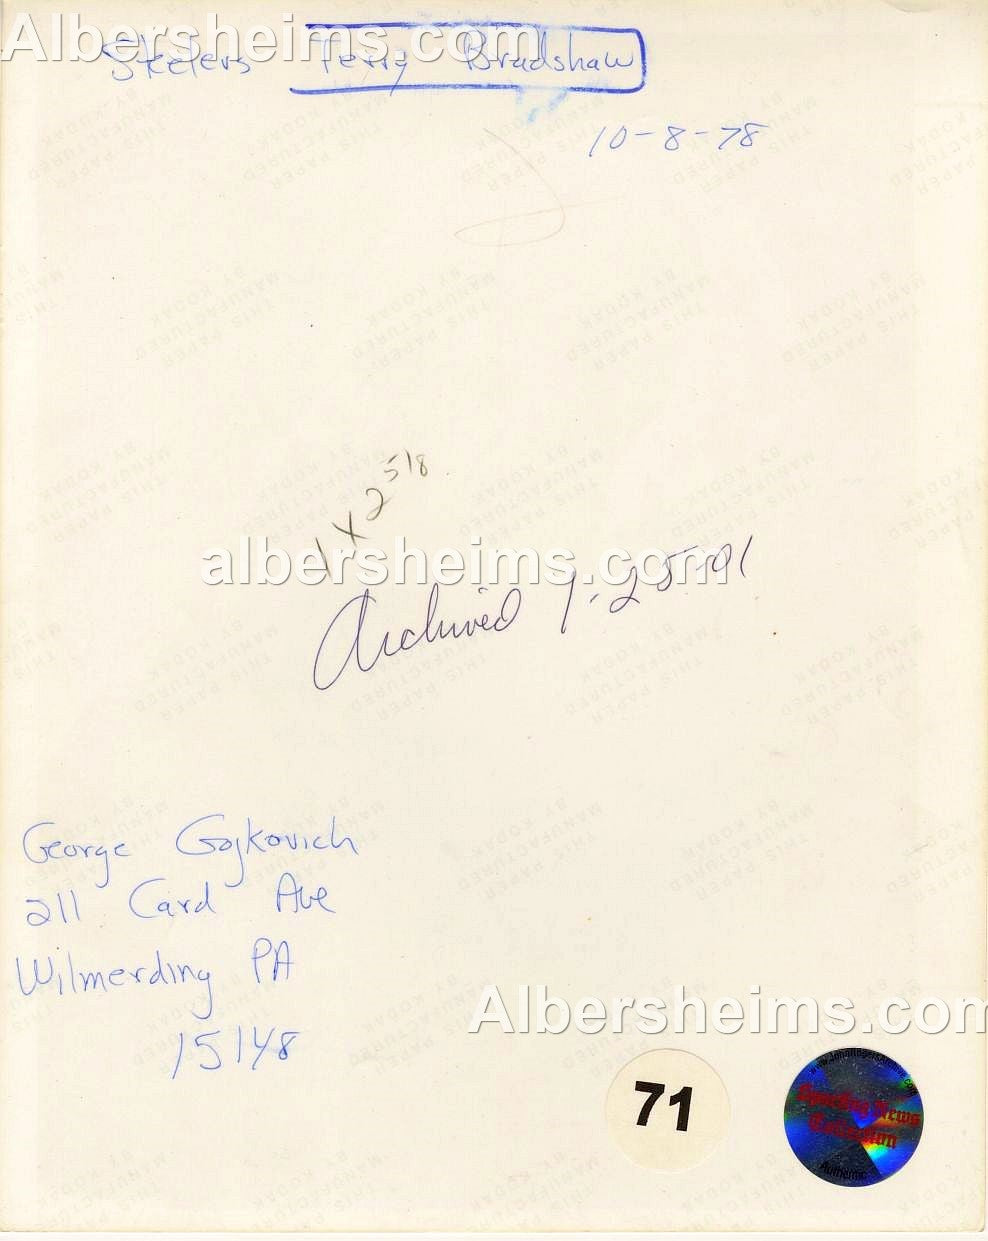 Albersheims.com
Steelers Terry Bradshaw
10-8-78
1 x 2 5/8
albersheims.com
Archived 1-25-01
George Gojkovich
211 Card Ave
Wilmerding PA
15148
Albersheims.com
71
www.JohnRogersArchive.com
Sporting News
Collection
Authentic
THIS PAPER
MANUFACTURED
BY KODAK